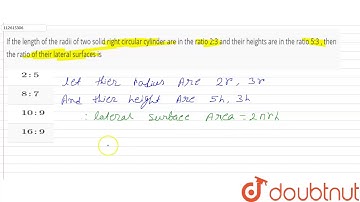 112615306
If the length of the radii of two solid right circular cylinder are in the ratio 2:3 and their heights are in the ratio 5:3 , then
the ratio of their lateral surfaces is
2 : 5
8 : 7
10 : 9
16 : 9
let thier radius Are 2r, 3r
And thier height Are 5h, 3h
: lateral surface Area = 2πrh
doubtnut